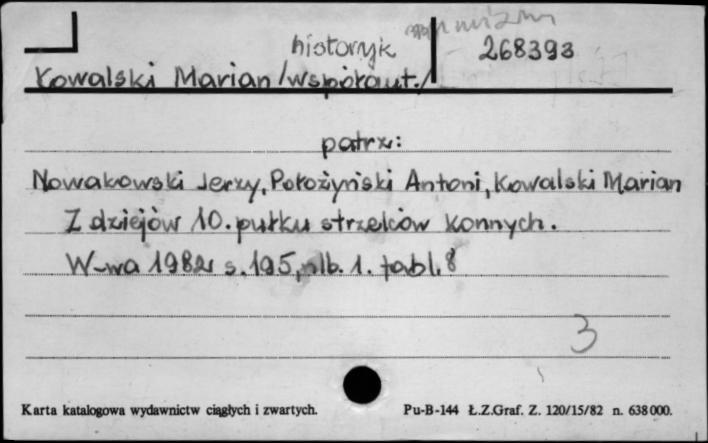 historyk 268393
Kowalski Marian /współaut./
patrz:
Nowakowski Jerzy, Położyński Antoni, Kowalski Marian
Z dziejów 10. pułku strzelców konnych.
W-wa 1982 s. 195, nlb. 1. tabl. 8
3
Karta katalogowa wydawnictw ciągłych i zwartych. Pu-B-144 Ł.Z.Graf. Z. 120/15/82 n. 638 000.